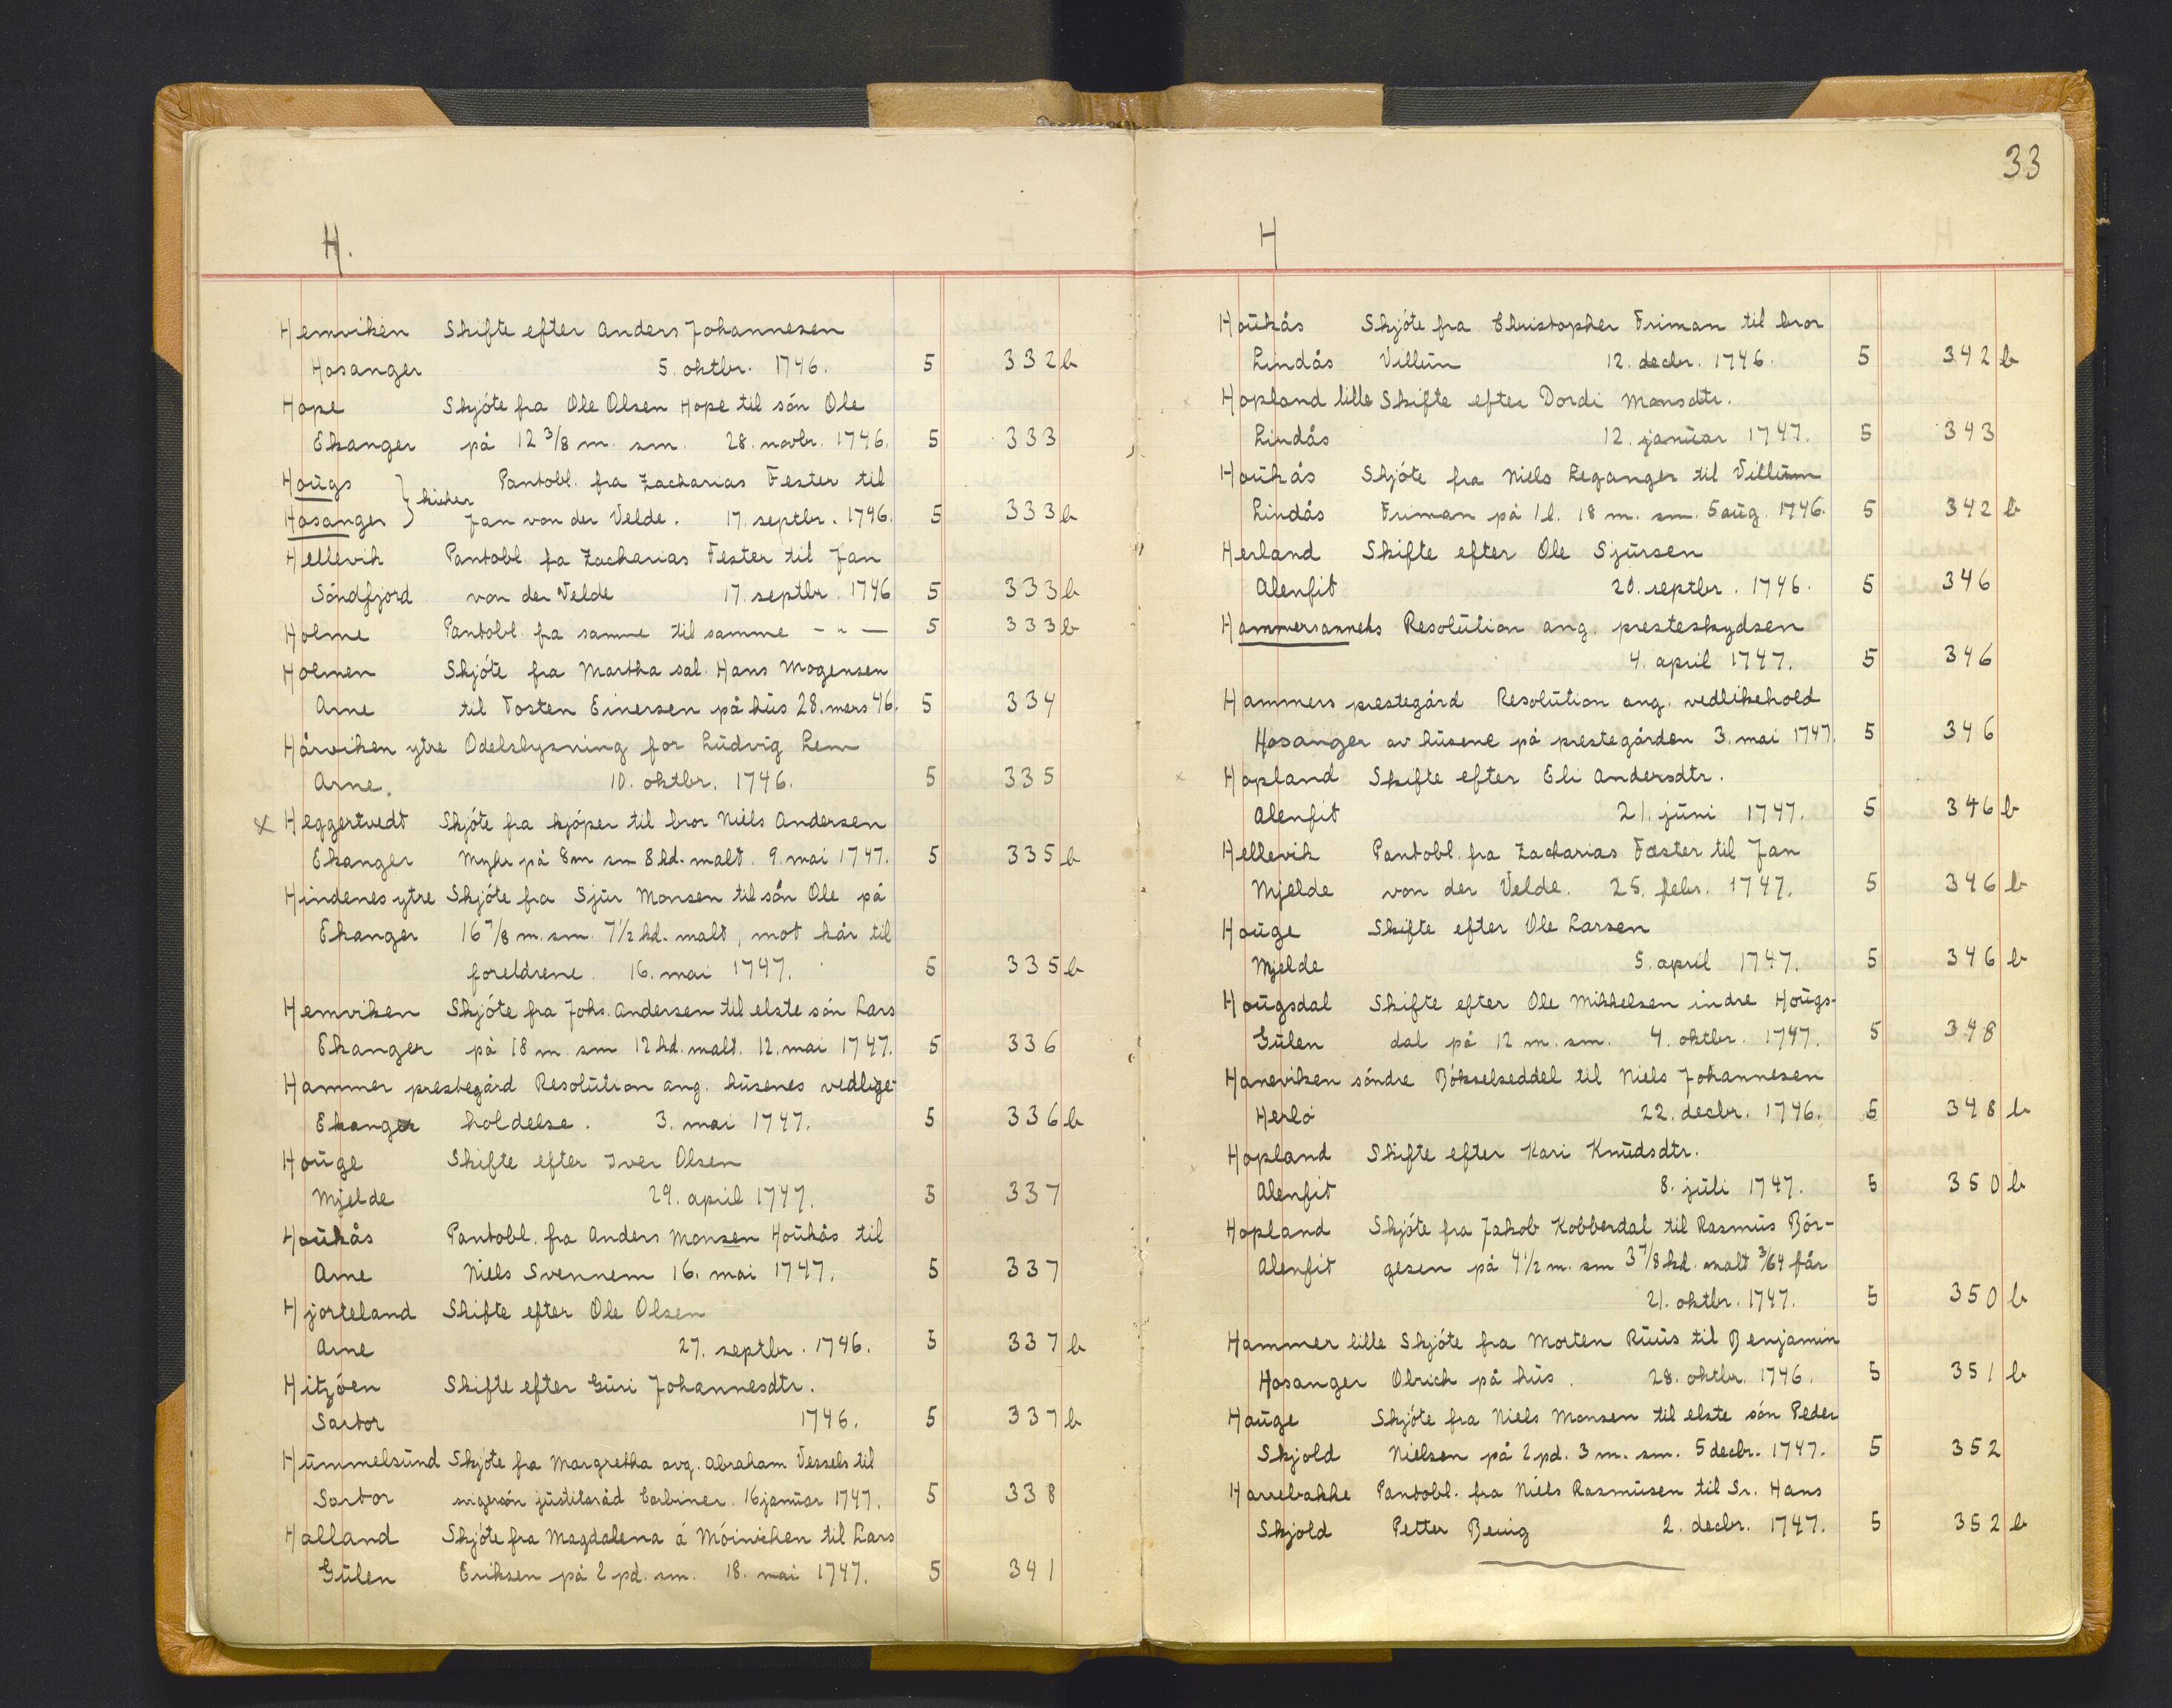 H.
Hemviken Skifte efter Anders Johannesen
Hosanger 5. oktbr. 1746. 5 332 b
Hope Skjóte fra Ole Olsen Hope til són Ole
Ekanger på 12 3/8 m. sm. 28. novbr. 1746. 5 333
Hoŭgs } kirker Pantobl. fra Zacharias Fester til
Hosanger Jan von der Velde. 17. septbr. 1746. 5 333 b
Hellevik Pantobl fa Zacharias Fester til Jan
Sóndfjord von der Velde 17. septbr. 1746 5 333 b
Holme Pantobl. fra samme til samme - " — 5 333 b
Holmen Skjóte fra Martha sal. Hans Mogensen
Arne til Tosten Einersen på hŭs 28. mars 46. 5 334
Hårviken ytre Odelslysning for Lŭdvig Lem
Arne. 10. oktbr. 1746. 5 335
x Heggertvedt Skjóte fra kjóper til bror Niels Andersen
Ekanger Myhr på 8 m sm 8 hd. malt. 9. mai 1747. 5 335 b
Hindenes ytre Skjóte fra Sjŭr Monsen til són Ole på
Ekanger 16 7/8 m. sm. 7 1/2 hd. malt, mot kår til
foreldrene. 16. mai 1747. 5 335 b
Hemviken Skjóte fra Johs. Andersen til elste són Lars
Ekanger på 18 m. sm 12 hd. malt. 12. mai 1747. 5 336
Hammer prestegård Resolŭtion ang. hŭsenes vedlige-
Ekanger holdelse. 3. mai 1747. 5 336 b
Hoŭge Skifte efter Iver Olsen
Mjelde 29. april 1747. 5 337
Hoŭkås Pantobl. fra Anders Monsen Hoŭkås til
Arne Niels Svennem 16. mai 1747. 5 337
Hjorteland Skifte efter Ole Olsen
Arne 27. septbr. 1746. 5 337 b
Hitzóen Skifte efter Gŭri Johannesdtr.
Sartor 1746. 5 337 b
Hŭmmelsŭnd Skjóte fra Margretha avg. Abraham Vessels til
Sartor svigersón jŭstitsråd Carbiner. 16 janŭar 1747. 5 338
Halland Skjóte fra Magdalena á Móinichen til Lars
Gŭlen Eriksen på 2 pd. sm. 18. mai 1747. 5 341
33
H
Hoŭkås Skjóte fra Christopher Friman til bror
Lindås Villŭm 12. decbr. 1746. 5 342 b
Hopland lille Skifte efter Dordi Monsdtr.
Lindås 12. janŭar 1747. 5 343
Hoŭkås Skjóte fra Niels Leganger til Villŭm
Lindås Friman på 1 l. 18 m. sm. 5 aŭg. 1746. 5 342 b
Herland Skifte efter Ole Sjŭrsen
Alenfit 20. septbr. 1746. 5 346
Hammersannets Resolŭtion ang. presteskydsen
4. april 1747. 5 346
Hammers prestegård Resolŭtion ang. vedlikehold
Hosanger av hŭsene på prestegården 3. mai 1747. 5 346
Hopland Skifte efter Eli Andersdtr.
Alenfit 21. jŭni 1747. 5 346 b
Hellevik Pantobl. fra Zacharias Fæster til Jan
Mjelde von der Velde. 25. febr. 1747. 5 346 b
Hoŭge Skifte efter Ole Larsen
Mjelde 5. april 1747. 5 346 b
Hoŭgsdal Skifte efter Ole Mikkelsen indre Hoŭgs-
Gŭlen dal på 12 m. sm. 4. oktbr. 1747. 5 348
Haneviken sóndre Bókselseddel til Niels Johannesen
Herló 22. decbr. 1746. 5 348 b
Hopland Skifte efter Kari Knŭdsdtr.
Alenfit 8. jŭli 1747. 5 350 b
Hopland Skjóte fra Jakob Kobberdal til Rasmŭs Bór-
Alenfit gesen på 4 1/2 m. sm 3 7/8 hd. malt 3/64 får
21. oktbr. 1747. 5 350 b
Hammer lille Skjóte fra Morten Rŭŭs til Benjamin
Hosanger Olrich på hŭs. 28. oktbr. 1746. 5 351 b
Haŭge Skjóte fra Niels Monsen til elste són Peder
Skjold Nielsen på 2 pd. 3 m. sm. 5 decbr. 1747. 5 352
Harrebakke Pantobl. fra Niels Rasmŭsen til Sr. Hans
Skjold Petter Beuig 2. decbr. 1747. 5 352 b